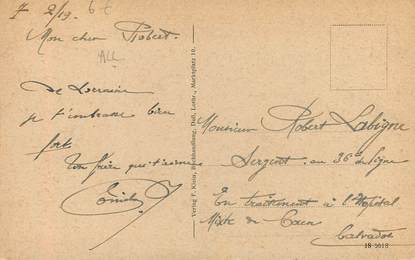 2/19.
Mon cher Robert.
De Lorraine
je t'embrasse bien
fort
Ton frère qui t'aime
Verlag F. Klein, Buchhandlung, Marktplatz 10.
Monsieur Robert Labigne
Sergent au 36e de ligne
En traitement à l'Hôpital
Mixte de Caen
Calvados
18 5618